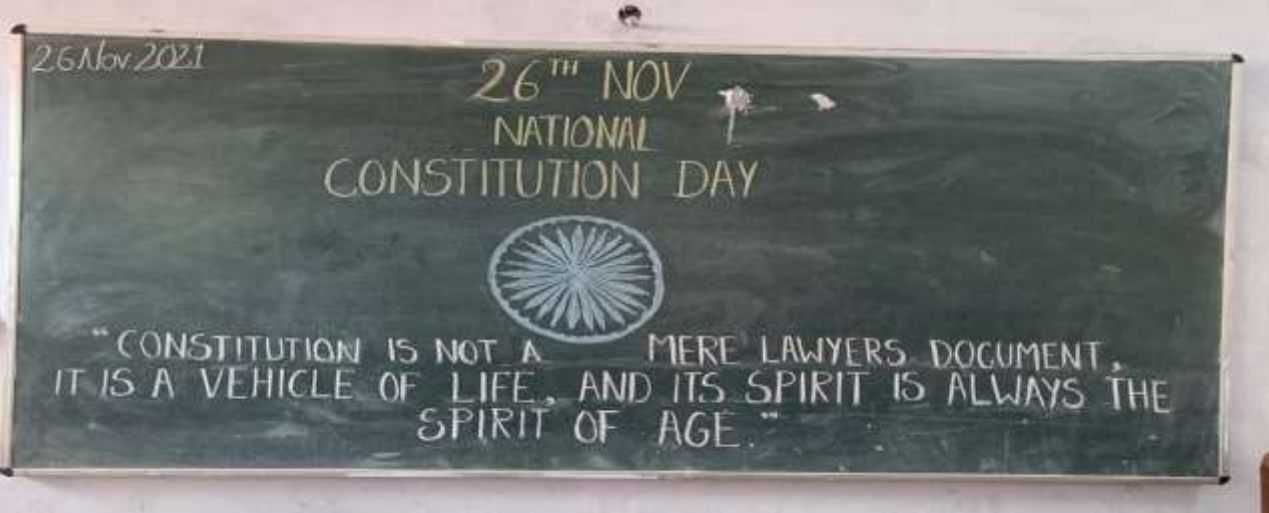 26 Nov 2021
26TH NOV
NATIONAL
CONSTITUTION DAY
"CONSTITUTION IS NOT A MERE LAWYERS DOCUMENT,
IT IS A VEHICLE OF LIFE, AND ITS SPIRIT IS ALWAYS THE
SPIRIT OF AGE."